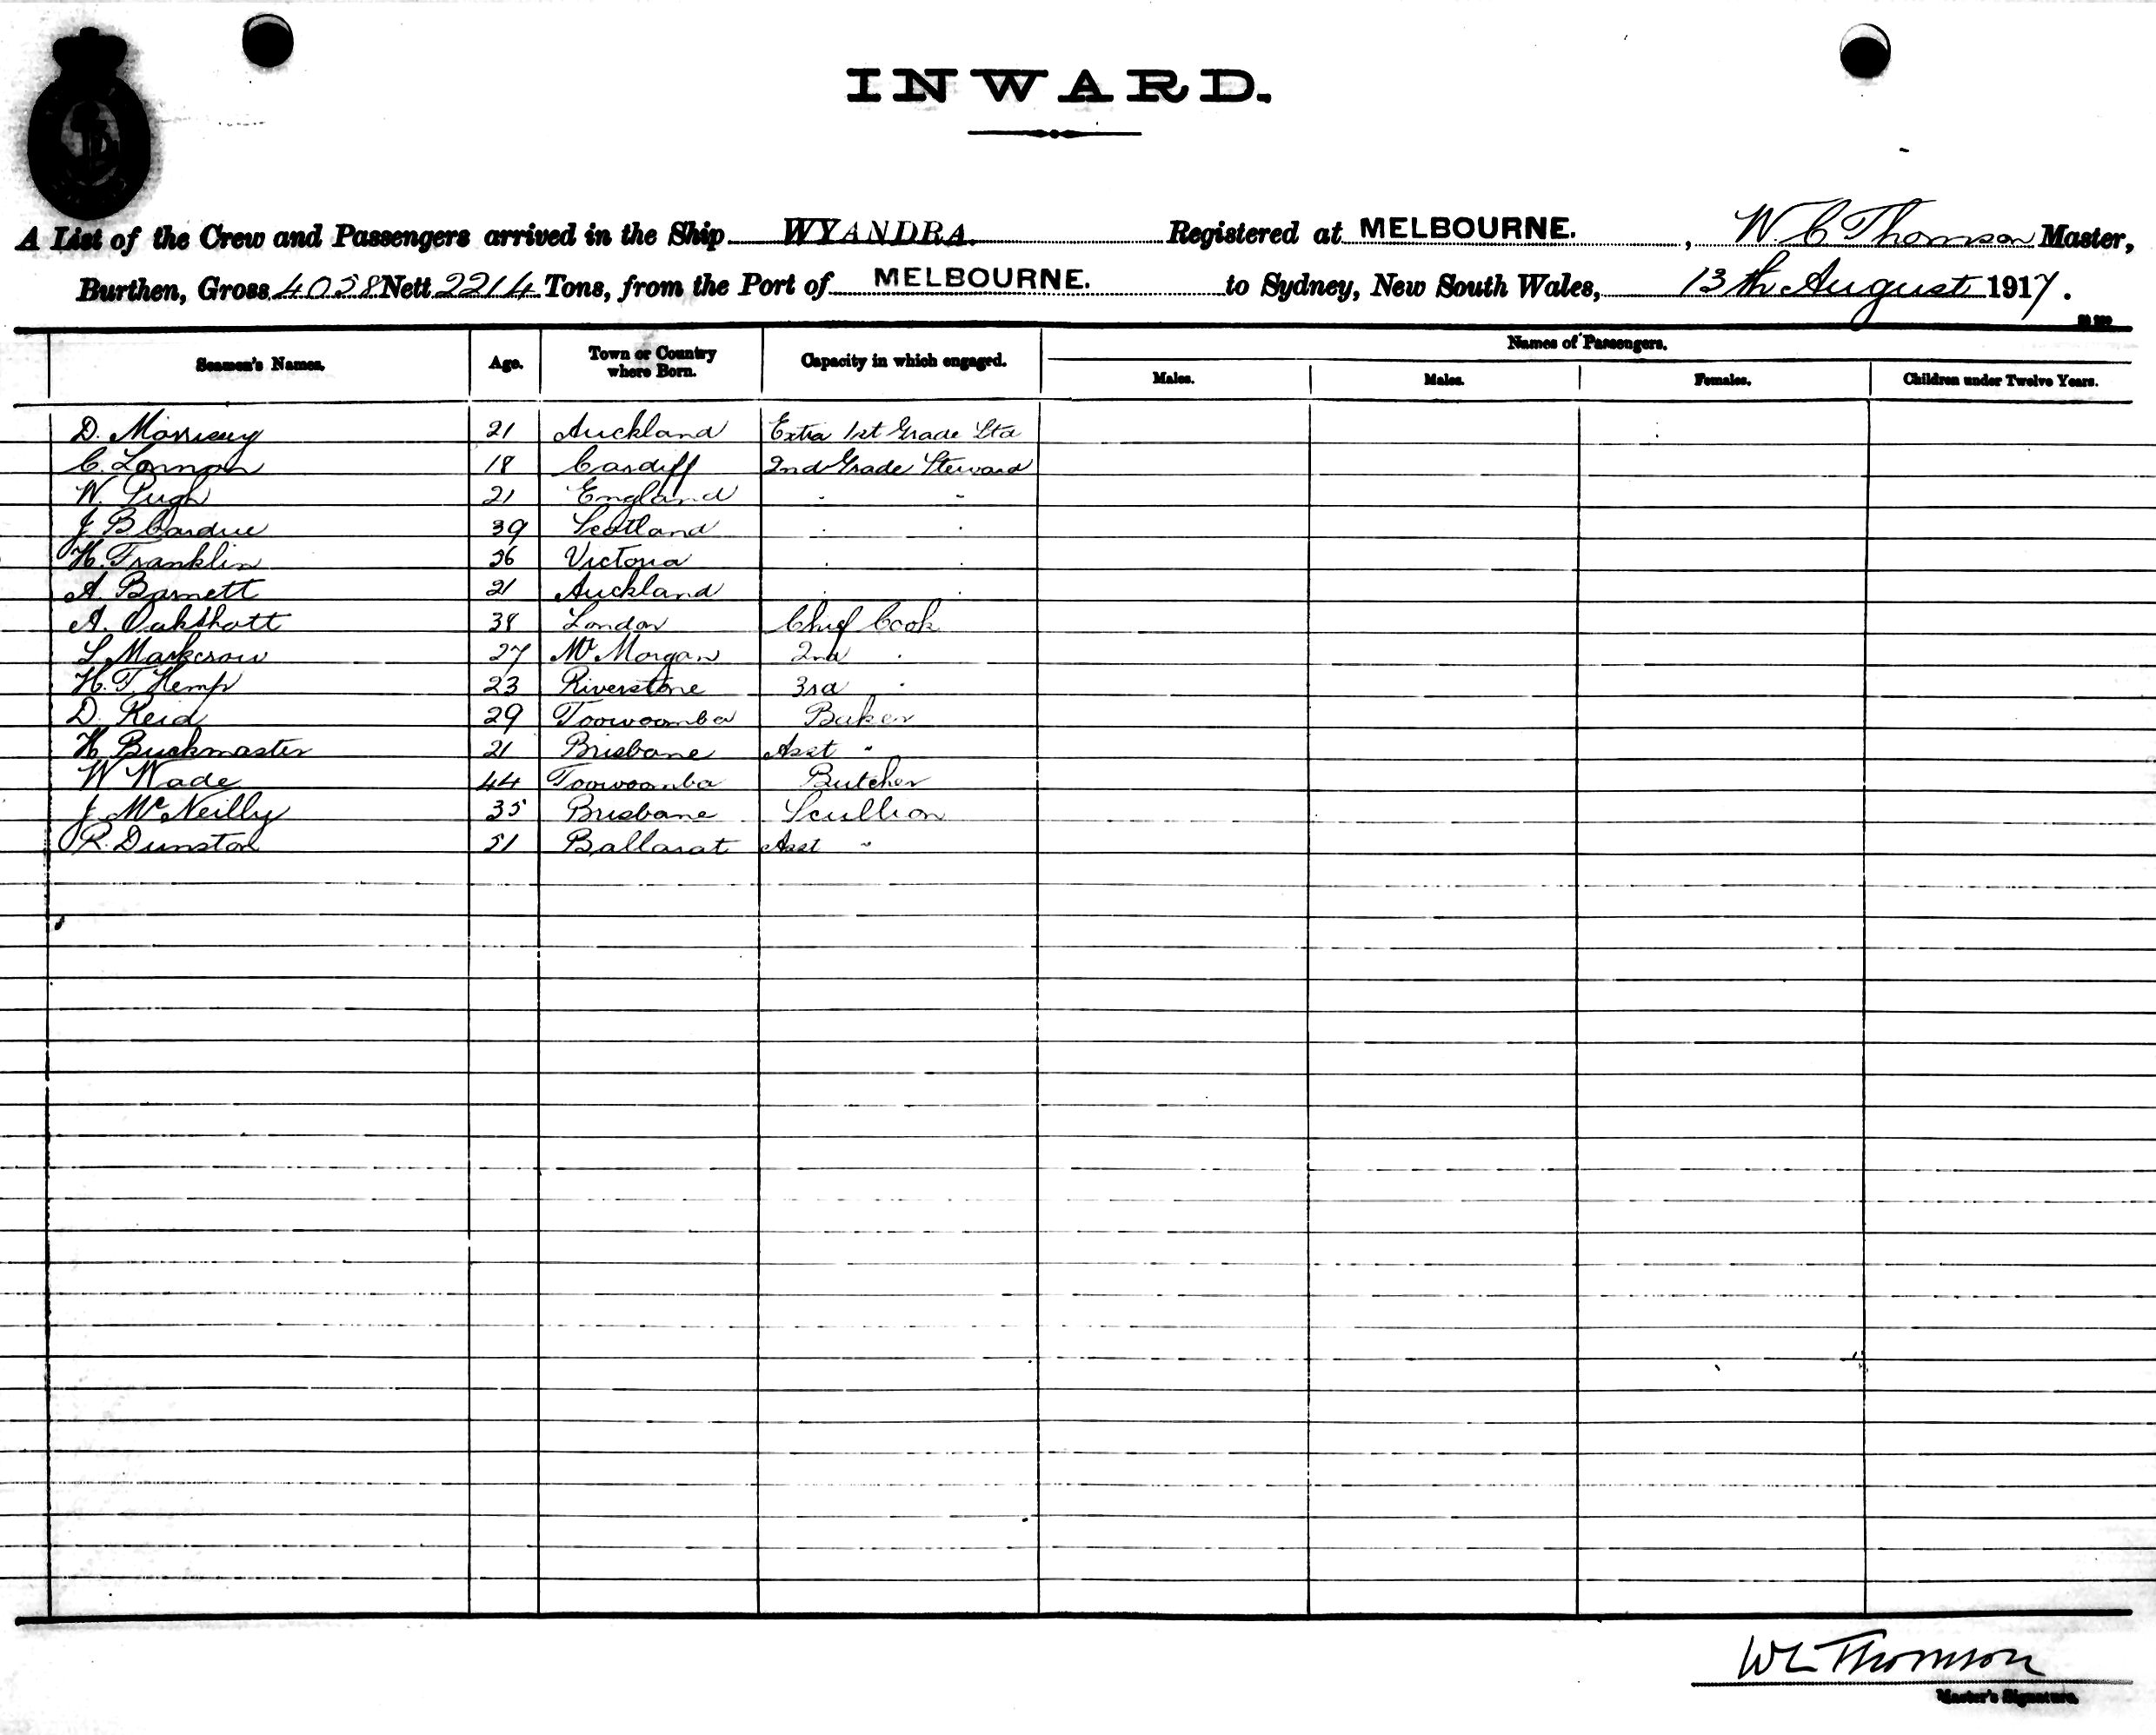 INWARD.
A List of the Crew and Passengers arrived in the Ship WYANDRA. Registered at MELBOURNE. , W. C Thomson Master,
Burthen, Gross 4058 Nett 2214 Tons, from the Port of MELBOURNE. to Sydney, New South Wales, 13th August 1917.
Names of Passengers.
Seamen's Names. Age. Town or Country where Born. Capacity in which engaged. Males. Males. Females. Children under Twelve Years.
D. Morrissey 21 Auckland Extra 1st Grade Std
C. 18 Cardiff 2nd Grade Steward
W. Pugh 21 England " "
J B Cardue 39 Scotland " "
H. Franklin 26 Victoria " "
A. Barnett 21 Auckland " "
A. Oakshott 38 London Chief Cook
L Markcrow 27 Mt Morgan 2nd "
H. T. Kemp 23 Riverstone 3rd "
D. Reid 29 Toowoomba Baker
H Buckmaster 21 Brisbane Asst "
W Wade 44 Toowoomba Butcher
J. McNeilly 35 Brisbane Scullion
R. Dunstan 51 Ballarat Asst "
WC Thomson
Master's Signature.